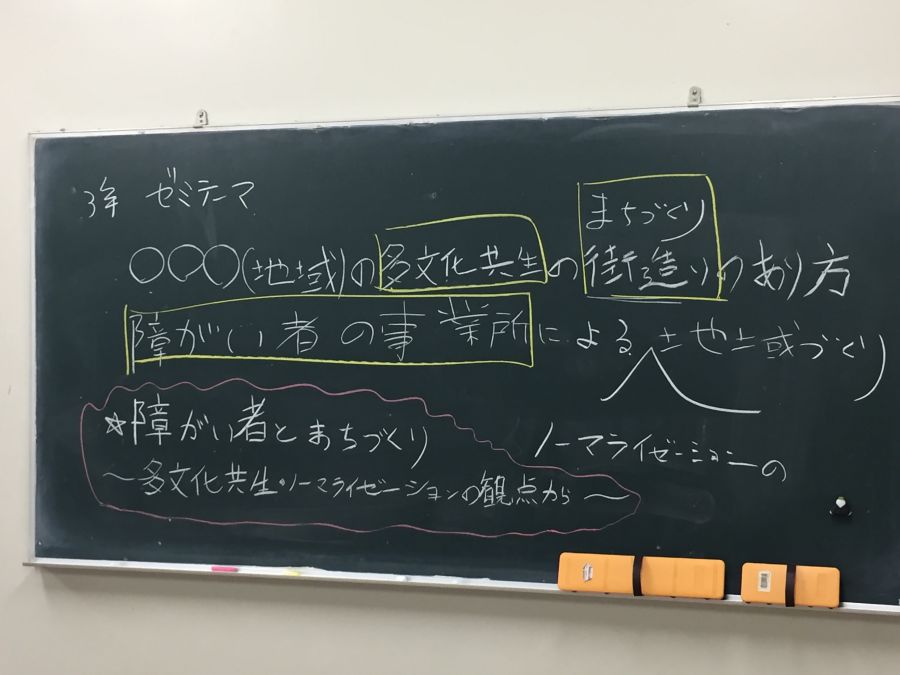 3年 ゼミテーマ
まちづくり
○○○(地域)の多文化共生の街造りのあり方
障がい者の事業所による地域づくり
ノーマライゼーションの
☆障がい者とまちづくり
～多文化共生・ノーマライゼーションの観点から～